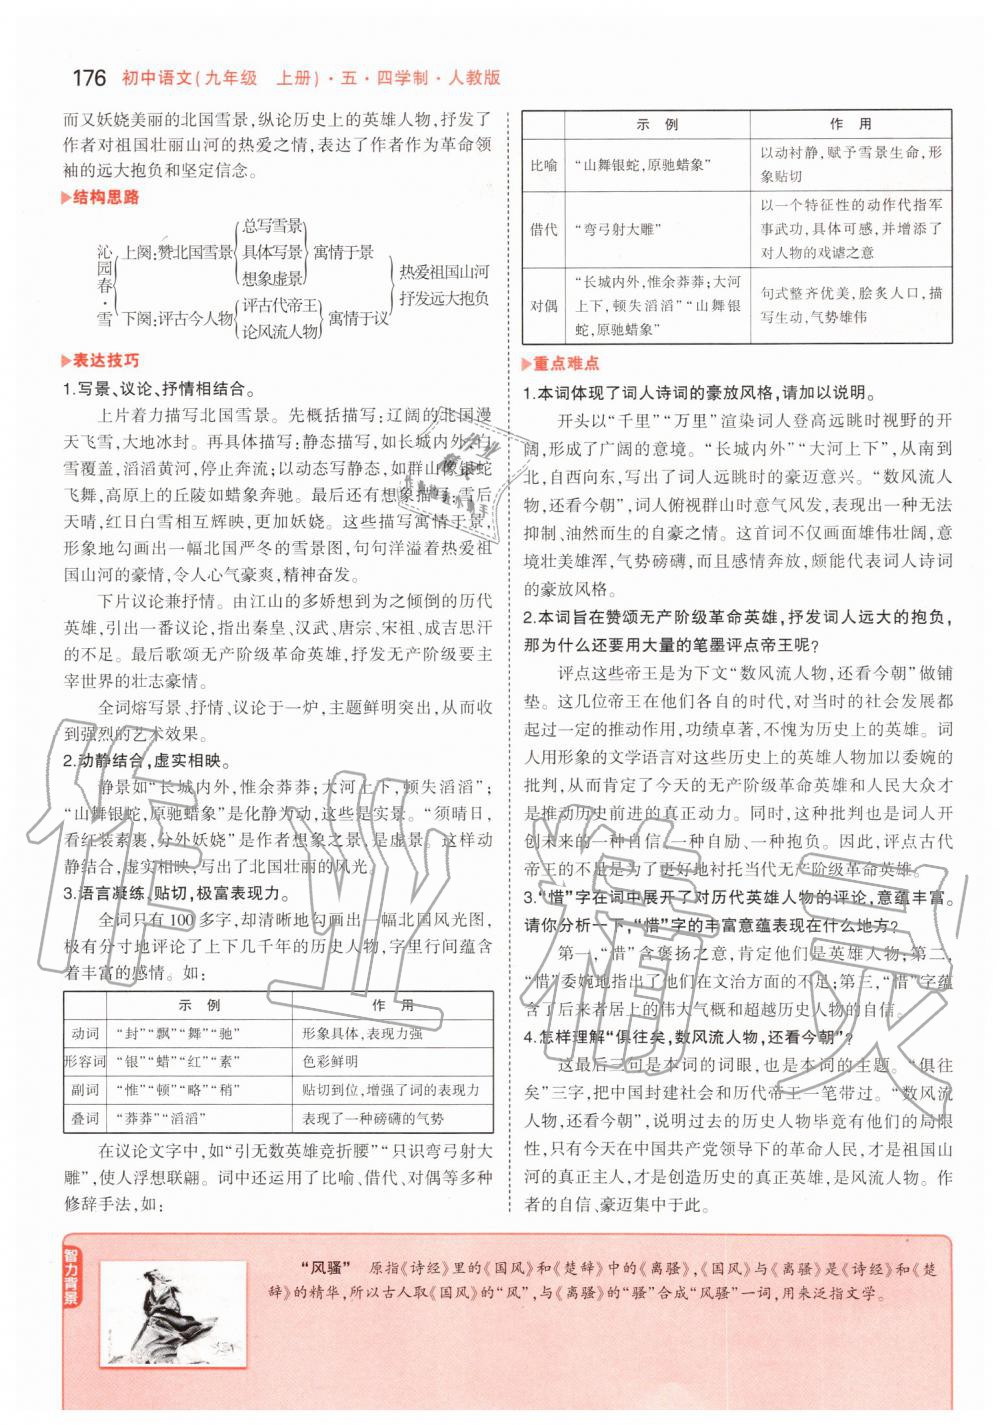 176 初中语文(九年级 上册)·五·四学制·人教版
而又妖娆美丽的北国雪景,纵论历史上的英雄人物,抒发了
作者对祖国壮丽山河的热爱之情,表达了作者作为革命领
袖的远大抱负和坚定信念。
▶结构思路
沁园春·雪
上阕:赞北国雪景
总写雪景
具体写景
想象虚景
寓情于景
下阕:评古今人物
评古代帝王
论风流人物
寓情于议
热爱祖国山河
抒发远大抱负
▶表达技巧
1.写景、议论、抒情相结合。
上片着力描写北国雪景。先概括描写:辽阔的北国漫
天飞雪,大地冰封。再具体描写:静态描写,如长城内外,白
雪覆盖,滔滔黄河,停止奔流;以动态写静态,如群山像银蛇
飞舞,高原上的丘陵如蜡象奔驰。最后还有想象描写:雪后
天晴,红日白雪相互辉映,更加妖娆。这些描写寓情于景,
形象地勾画出一幅北国严冬的雪景图,句句洋溢着热爱祖
国山河的豪情,令人心气豪爽,精神奋发。
下片议论兼抒情。由江山的多娇想到为之倾倒的历代
英雄,引出一番议论,指出秦皇、汉武、唐宗、宋祖、成吉思汗
的不足。最后歌颂无产阶级革命英雄,抒发无产阶级要主
宰世界的壮志豪情。
全词熔写景、抒情、议论于一炉,主题鲜明突出,从而收
到强烈的艺术效果。
2.动静结合,虚实相映。
静景如“长城内外,惟余莽莽;大河上下,顿失滔滔”;
“山舞银蛇,原驰蜡象”是化静为动,这些是实景。“须晴日,
看红装素裹,分外妖娆”是作者想象之景,是虚景。这样动
静结合,虚实相映,写出了北国壮丽的风光。
3.语言凝练,贴切,极富表现力。
全词只有100多字,却清晰地勾画出一幅北国风光图,
极有分寸地评论了上下几千年的历史人物,字里行间蕴含
着丰富的感情。如:
示 例 作 用
动词 “封”“飘”“舞”“驰” 形象具体,表现力强
形容词 “银”“蜡”“红”“素” 色彩鲜明
副词 “惟”“顿”“略”“稍” 贴切到位,增强了词的表现力
叠词 “莽莽”“滔滔” 表现了一种磅礴的气势
在议论文字中,如“引无数英雄竞折腰”“只识弯弓射大
雕”,使人浮想联翩。词中还运用了比喻、借代、对偶等多种
修辞手法,如:
示 例 作 用
比喻 “山舞银蛇,原驰蜡象” 以动衬静,赋予雪景生命,形
象贴切
借代 “弯弓射大雕” 以一个特征性的动作代指军
事武功,具体可感,并增添了
对人物的戏谑之意
对偶 “长城内外,惟余莽莽;大河
上下,顿失滔滔”“山舞银
蛇,原驰蜡象” 句式整齐优美,脍炙人口,描
写生动,气势雄伟
▶重点难点
1.本词体现了词人诗词的豪放风格,请加以说明。
开头以“千里”“万里”渲染词人登高远眺时视野的开
阔,形成了广阔的意境。“长城内外”“大河上下”,从南到
北,自西向东,写出了词人远眺时的豪迈意兴。“数风流人
物,还看今朝”,词人俯视群山时意气风发,表现出一种无法
抑制、油然而生的自豪之情。这首词不仅画面雄伟壮阔,意
境壮美雄浑,气势磅礴,而且感情奔放,颇能代表词人诗词
的豪放风格。
2.本词旨在赞颂无产阶级革命英雄,抒发词人远大的抱负,
那为什么还要用大量的笔墨评点帝王呢?
评点这些帝王是为下文“数风流人物,还看今朝”做铺
垫。这几位帝王在他们各自的时代,对当时的社会发展都
起过一定的推动作用,功绩卓著,不愧为历史上的英雄。词
人用形象的文学语言对这些历史上的英雄人物加以委婉的
批判,从而肯定了今天的无产阶级革命英雄和人民大众才
是推动历史前进的真正动力。同时,这种批判也是词人开
创未来的一种自信、一种自励、一种抱负。因此,评点古代
帝王的不足是为了更好地衬托当代无产阶级革命英雄。
3.“惜”字在词中展开了对历代英雄人物的评论,意蕴丰富。
请你分析一下,“惜”字的丰富意蕴表现在什么地方?
第一,“惜”含褒扬之意,肯定他们是英雄人物;第二,
“惜”委婉地指出了他们在文治方面的不足;第三,“惜”字蕴
含了后来者居上的伟大气概和超越历史人物的自信。
4.怎样理解“俱往矣,数风流人物,还看今朝”?
这最后三句是本词的词眼,也是本词的主题。“俱往
矣”三字,把中国封建社会和历代帝王一笔带过。“数风流
人物,还看今朝”,说明过去的历史人物毕竟有他们的局限
性,只有今天在中国共产党领导下的革命人民,才是祖国山
河的真正主人,才是创造历史的真正英雄,是风流人物。作
者的自信、豪迈集中于此。
智力背景
“风骚” 原指《诗经》里的《国风》和《楚辞》中的《离骚》,《国风》与《离骚》是《诗经》和《楚
辞》的精华,所以古人取《国风》的“风”,与《离骚》的“骚”合成“风骚”一词,用来泛指文学。
作业精灵